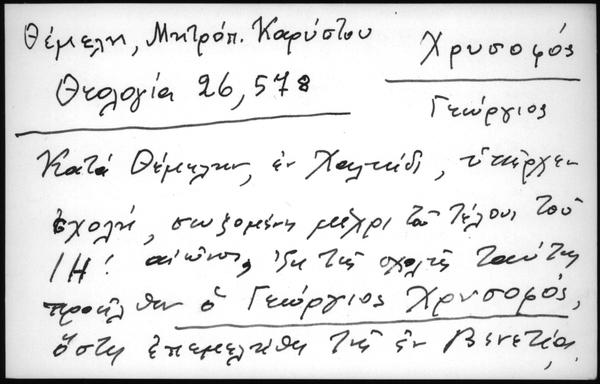 Θέμελη, Μητρόπ. Καρύστου
Θεολογία 26, 578
Χρυσοφός
Γεώργιος
Κατά Θέμελην, ἐν Χαλκίδι, ὑπῆρχεν
σχολή, σωζομένη μέχρι τοῦ τέλους τοῦ
ΙΗ! αἰῶνος, ἐκ τῆς σχολῆς ταύτης
προῆλθεν ὁ Γεώργιος Χρυσοφός,
ὅστις ἐπεμελήθη τῆς ἐν Βενετίᾳ,